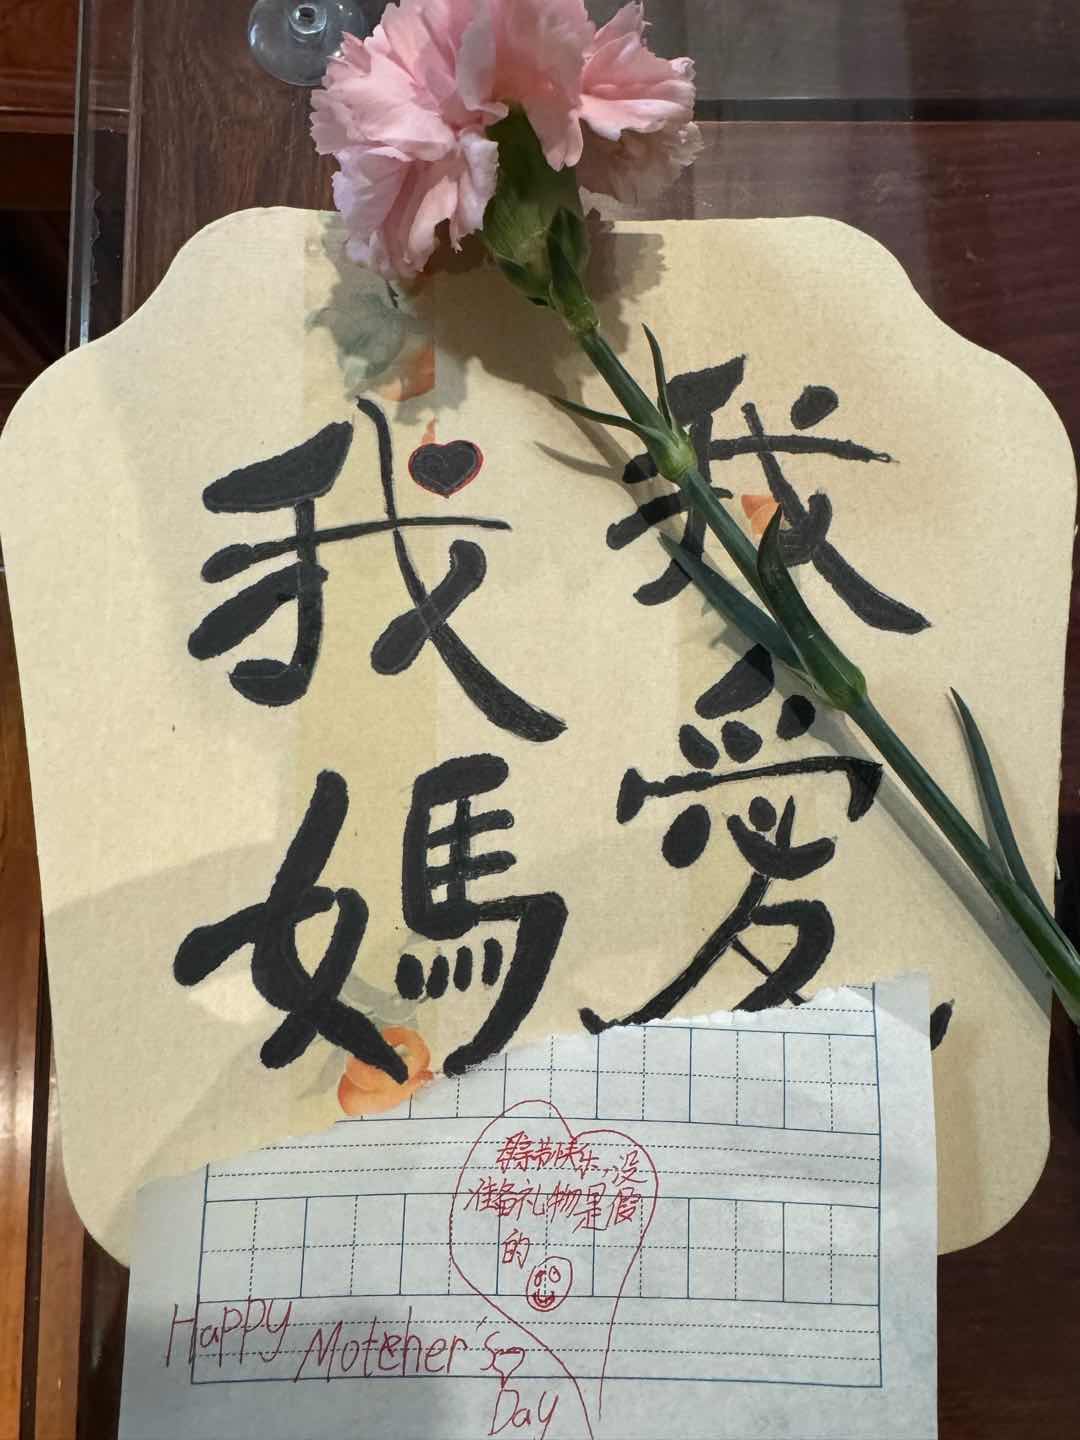 我愛
我媽
母亲节快乐,没
准备礼物是假
的
Happy Mother's
Day